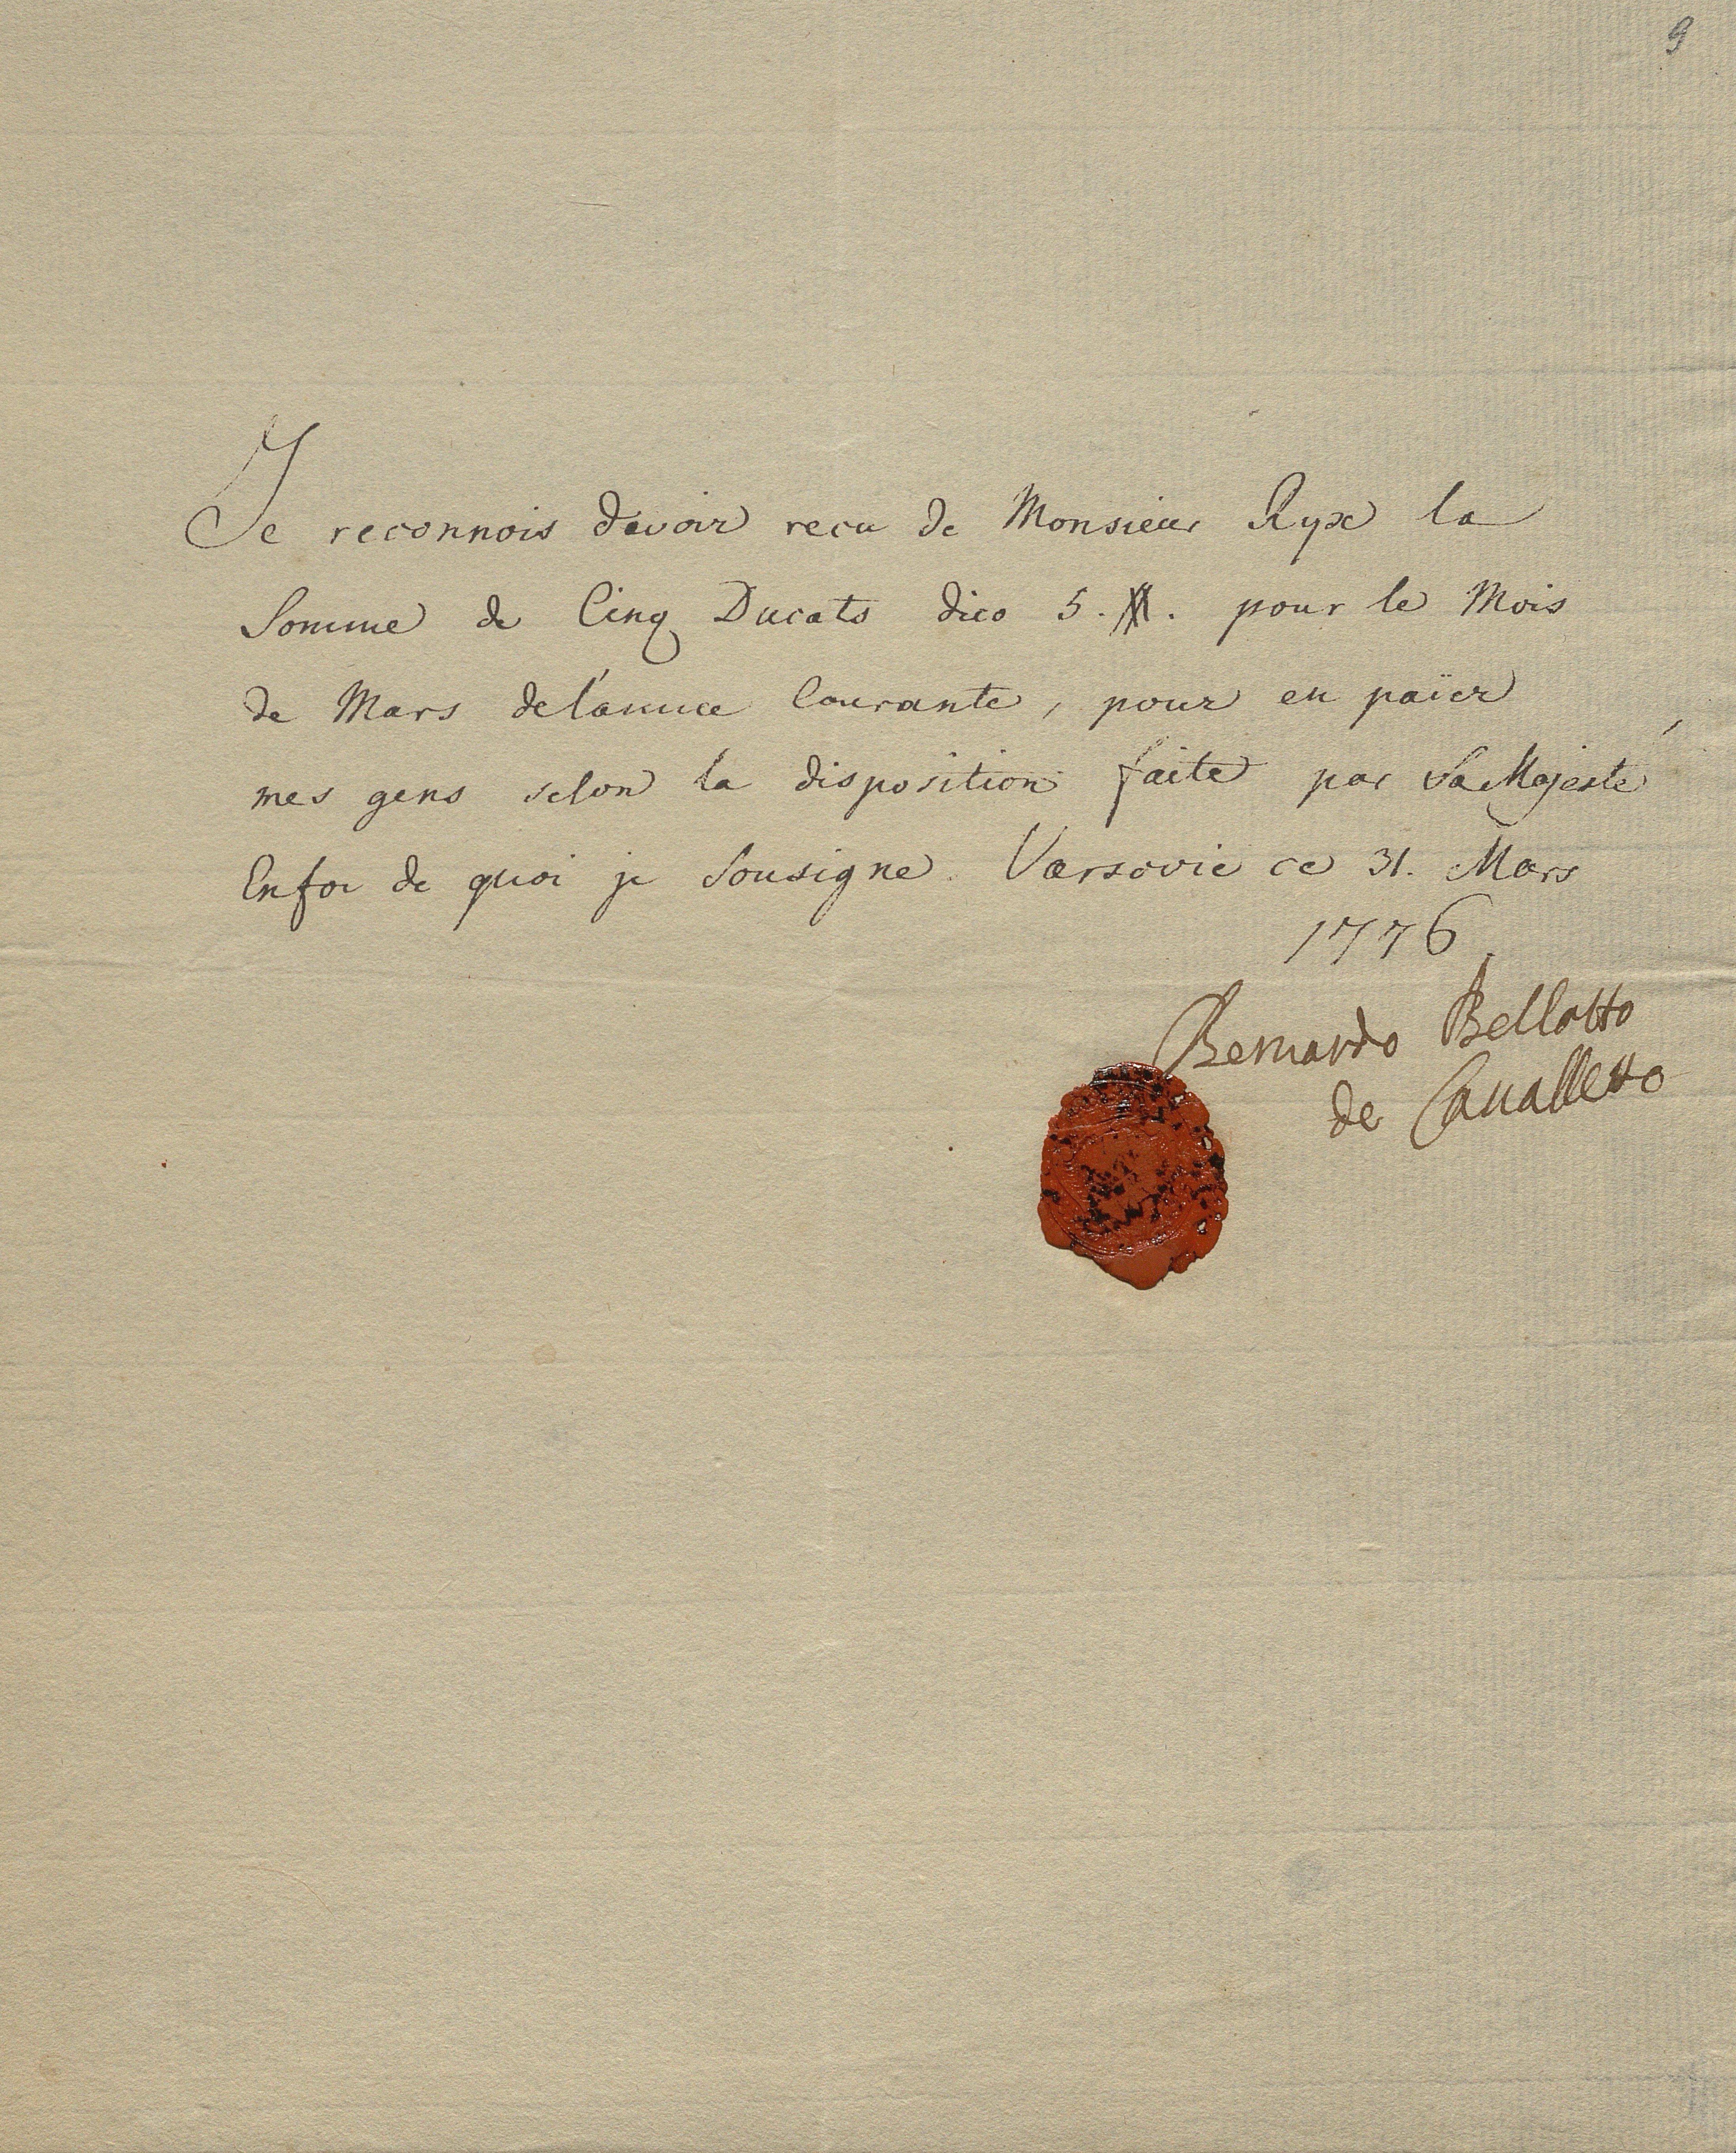 9
Je reconnois d'avoir recu de Monsieur Ryx la
Somme de Cinq Ducats dico 5. . pour le Mois
de Mars de l'annee Courante, pour en païer
mes gens selon la disposition faite par Sa Majesté
En foi de quoi je Sousigne. Varsovie ce 31. Mars
1776.
Bernardo Bellotto
de Canalletto